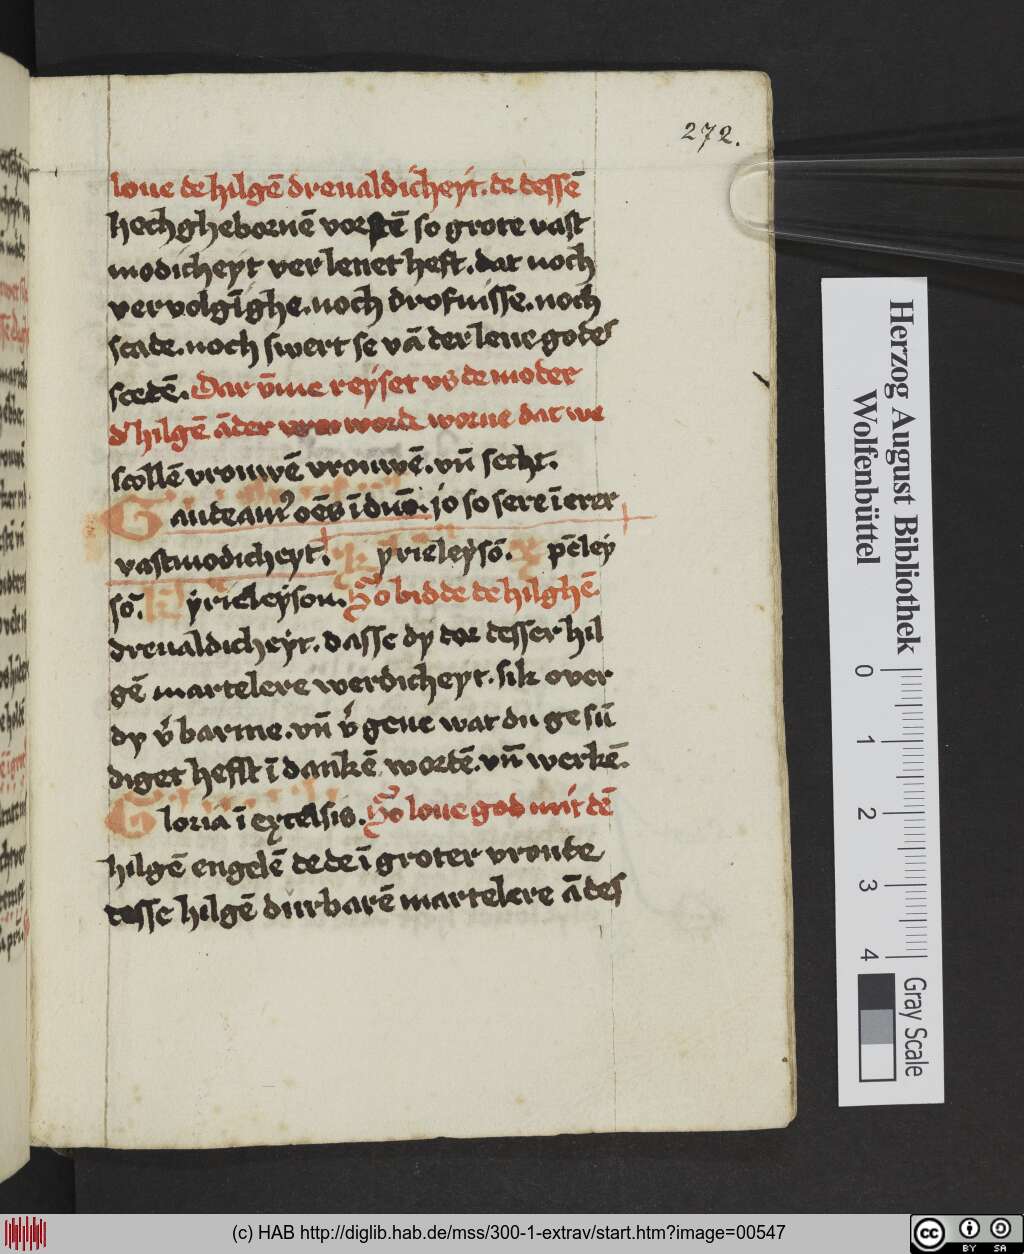 272.
loue de hilgē dreualdicheyt. de dessē
hechghebornē vorstē so grote vast
modicheyt verlenet heft. dat noch
vervolgīghe. noch drofnisse. noch
scade. noch swert se vā der leue godes
scedē. Dar v̄me reyset vs de moder
d' hilgē āder worde worue dat we
scollē vrouwē vrouwē. vn̄ secht.
Gaudeam9 oēs ī dn̄o. jo so sere ī erer
vastmodicheyt. Kyrieleysō. Xpēley
sō. Kyrieleyson. So bidde de hilghē
dreualdicheyt. dasse dy dor desser hil
gē martelere werdicheyt. sik over
dy v̄barme. vn̄ v̄geue wat du gesū
diget hefft ī dankē wordē. vn̄ werkē.
Gloria ī excelsis. So loue god mit dē
hilgē engelē dede ī groter vroude
desse hilgē durbarē martelere ā des
Herzog August Bibliothek
Wolfenbüttel
0 1 2 3 4
Gray Scale
(c) HAB http://diglib.hab.de/mss/300-1-extrav/start.htm?image=00547
cc BY SA